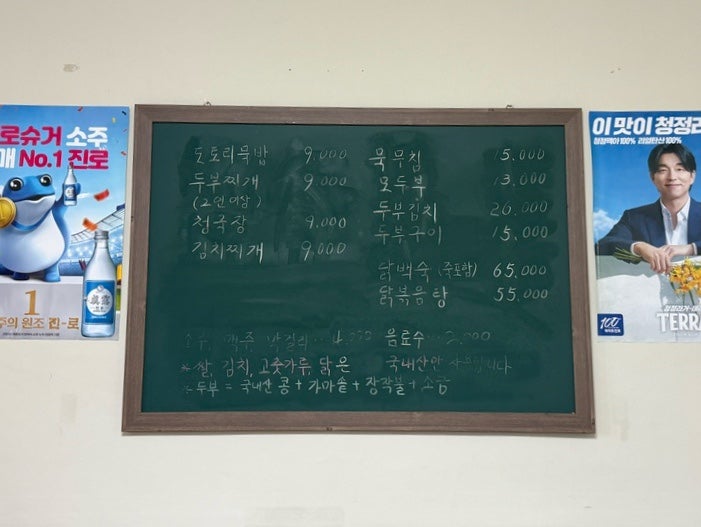 로슈거 소주
No.1 진로
1
원조 진-로
도토리묵밥 9,000
두부찌개 9,000
(2인 이상)
청국장 9,000
김치찌개 9,000
묵무침 15,000
모두부 13,000
두부김치 20,000
두부구이 15,000
닭백숙 (죽포함) 65,000
닭볶음탕 55,000
음료수
*쌀, 김치, 고춧가루, 닭은 국내산만 사용합니다
*두부 = 국내산 콩 + 가마솥 + 장작불 + 소금
이 맛이 청정라
청정맥아 100% 리얼탄산 100%
100
TERRA